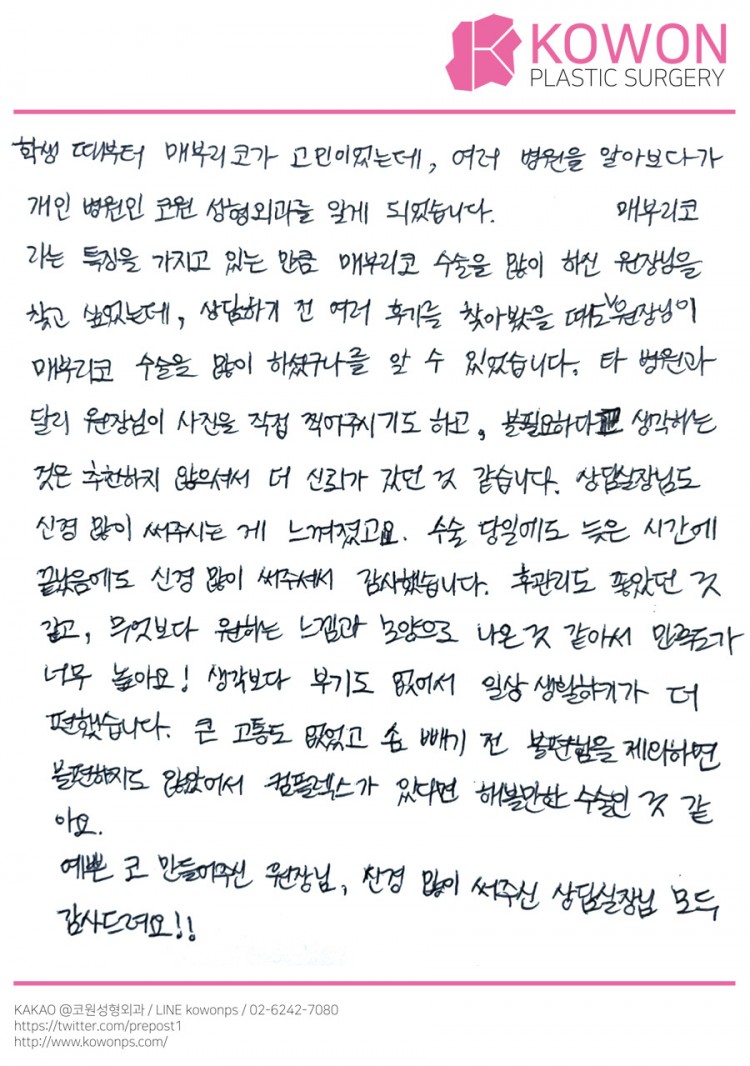 KOWON
PLASTIC SURGERY
학생 때부터 매부리코가 고민이었는데, 여러 병원을 알아보다가
개인 병원인 코원 성형외과를 알게 되었습니다. 매부리코
라는 특징을 가지고 있는 만큼 매부리코 수술을 많이 하신 원장님을
찾고 싶었는데, 상담하기 전 여러 후기를 찾아봤을 때도 원장님이
매부리코 수술을 많이 하셨구나를 알 수 있었습니다. 타 병원과
달리 원장님이 사진을 직접 찍어주시기도 하고, 불필요하다고 생각하는
것은 추천하지 않으셔서 더 신뢰가 갔던 것 같습니다. 상담실장님도
신경 많이 써주시는 게 느껴졌고요. 수술 당일에도 늦은 시간에
끝났음에도 신경 많이 써주셔서 감사했습니다. 후관리도 좋았던 것
같고, 무엇보다 원하는 느낌과 모양으로 나온 것 같아서 만족도가
너무 높아요! 생각보다 부기도 없어서 일상 생활하기가 더
편했습니다. 큰 고통도 없었고 솜 빼기 전 불편함을 제외하면
불편하지도 않았어서 컴플렉스가 있다면 해볼만한 수술인 것 같
아요.
예쁜 코 만들어주신 원장님, 신경 많이 써주신 상담실장님 모두
감사드려요!!
KAKAO @코원성형외과 / LINE kowonps / 02-6242-7080
https://twitter.com/prepost1
http://www.kowonps.com/